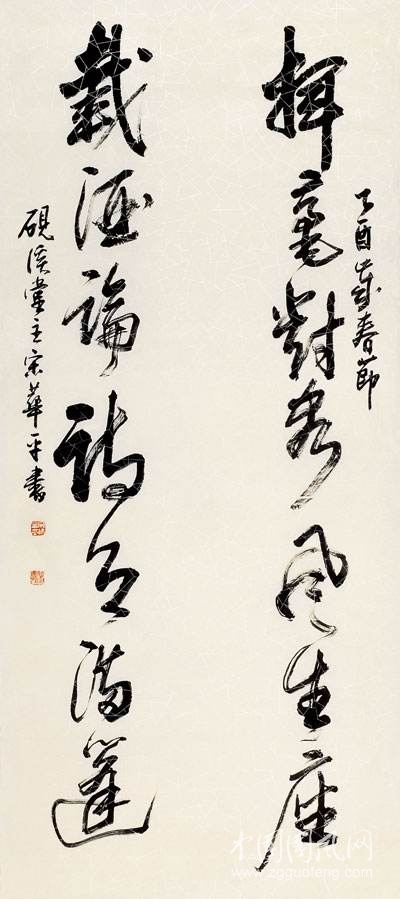 乙酉歲春節
揮毫對客風生座
載酒論詩月滿篷
硯溪堂主宋華平書
中国国风网
www.zgguofeng.com